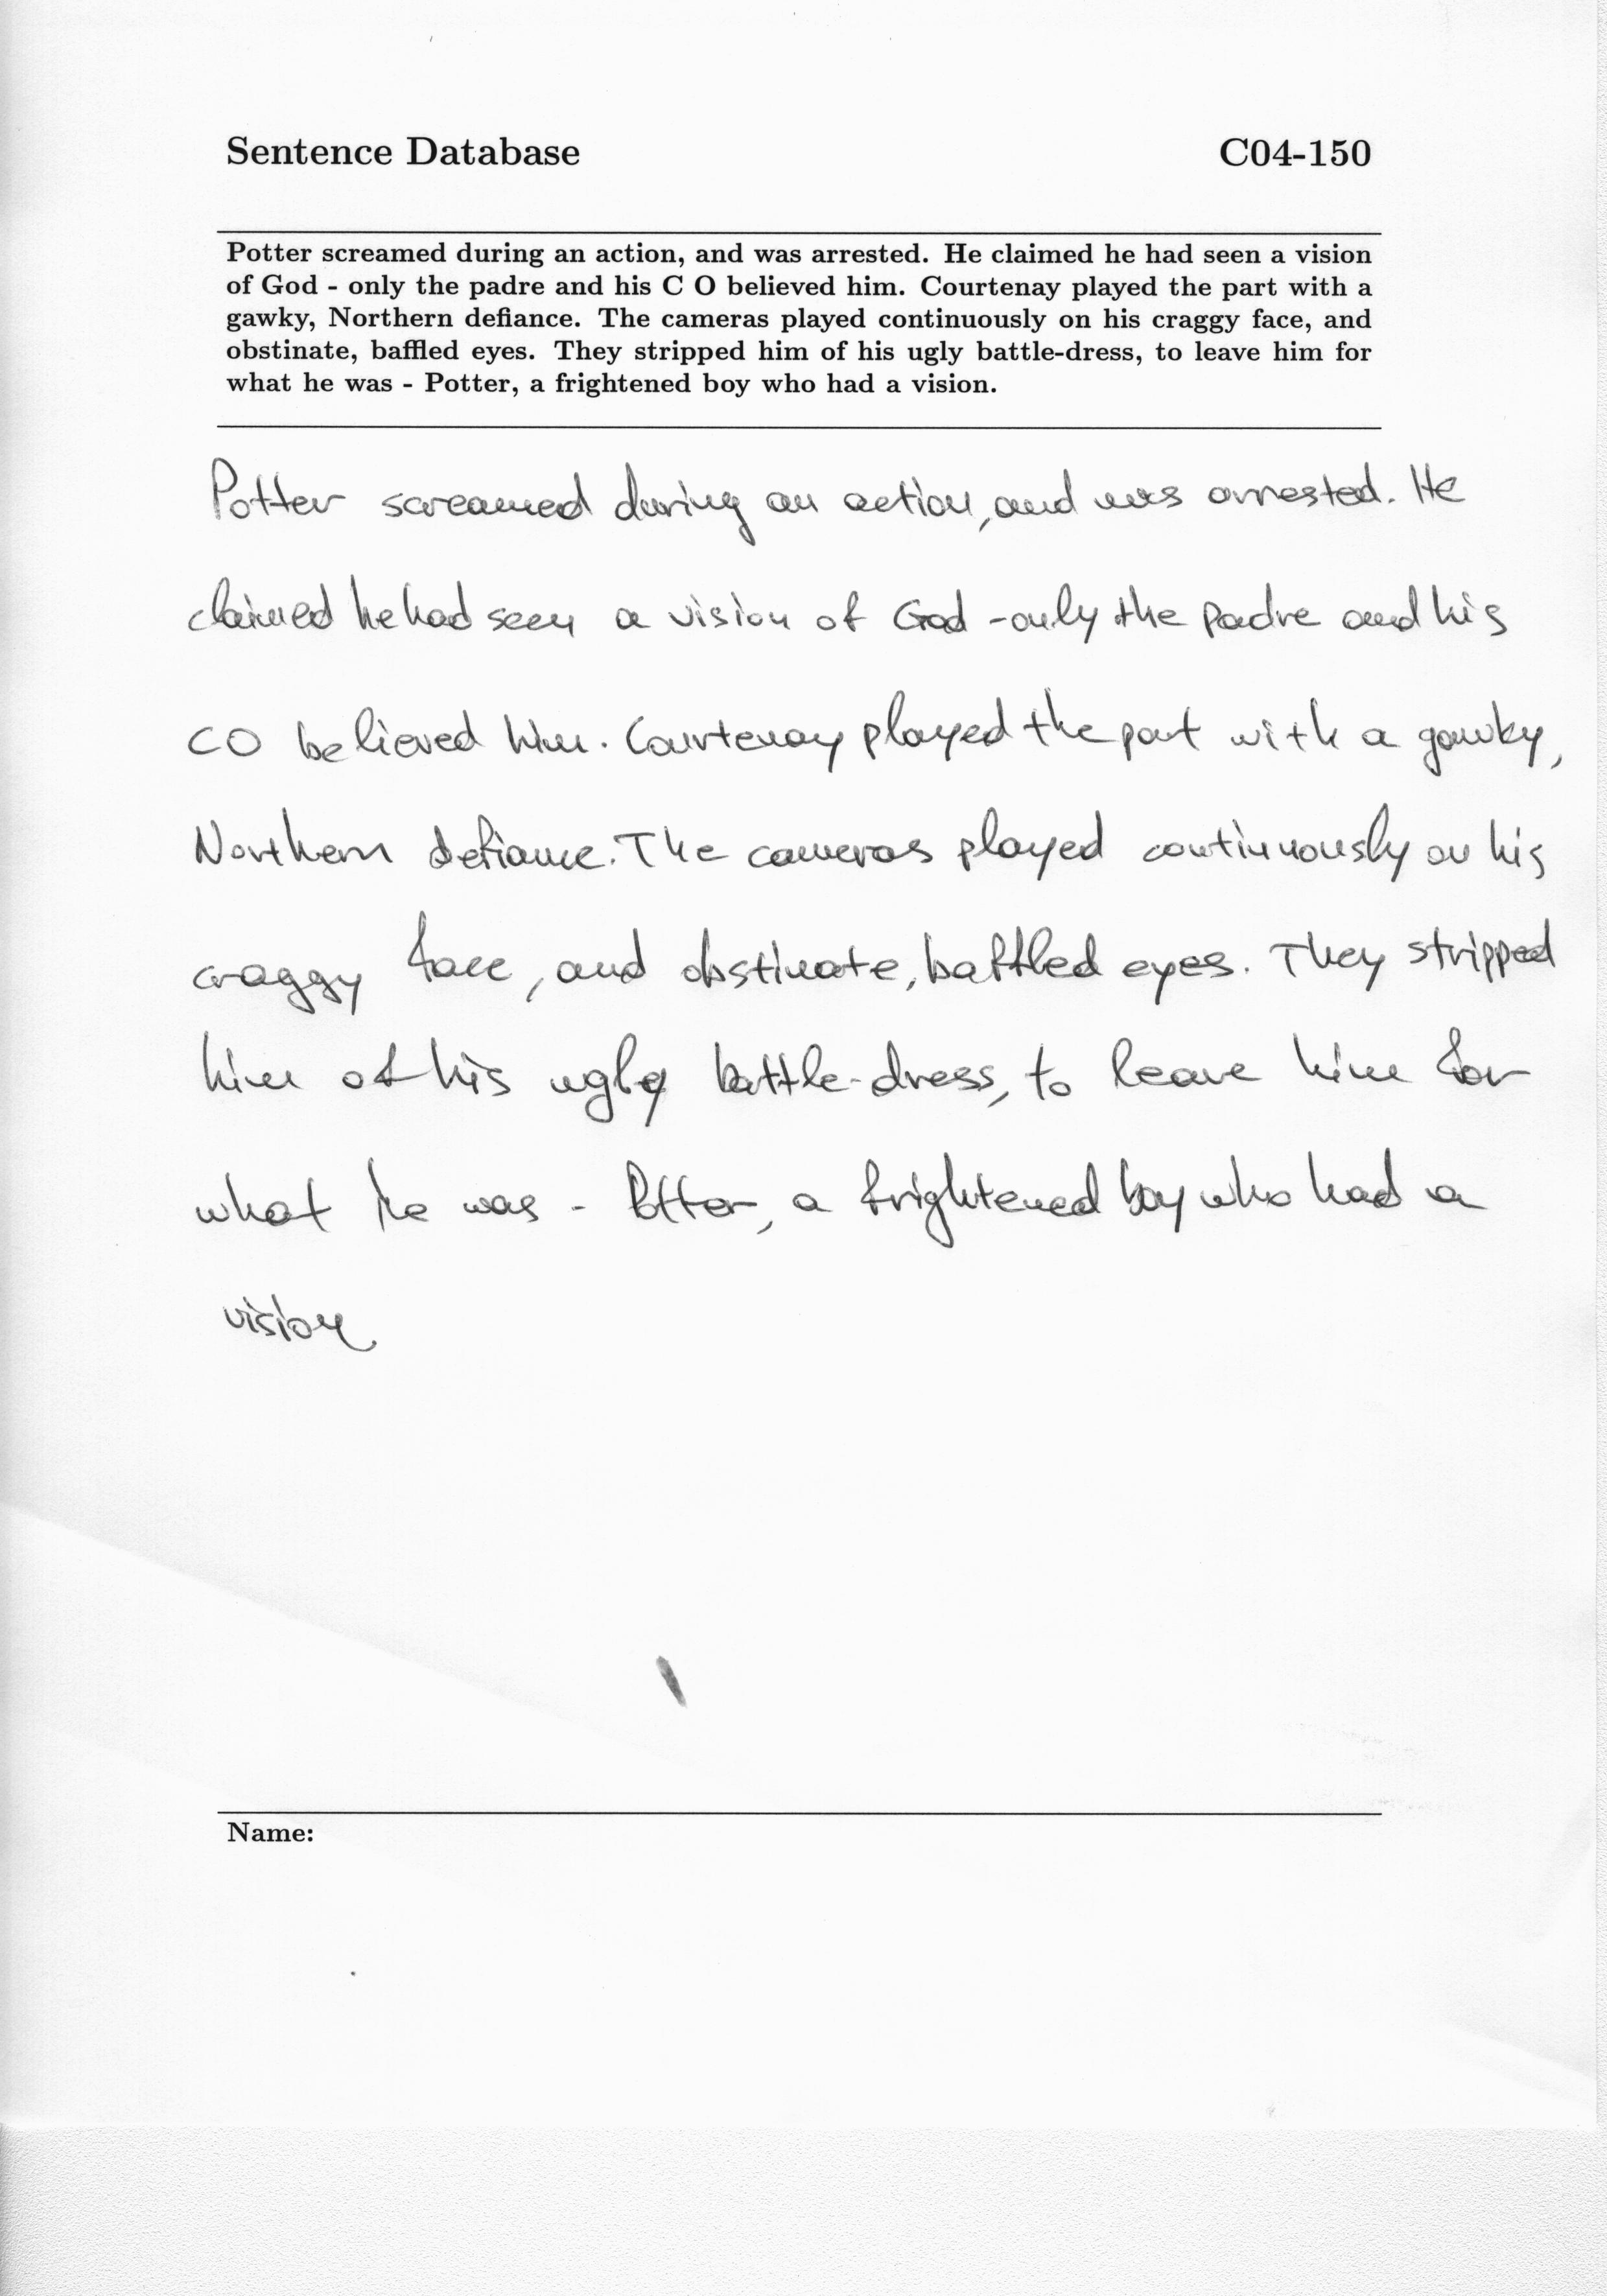 Sentence Database C04-150
Potter screamed during an action, and was arrested. He claimed he had seen a vision
of God - only the padre and his C O believed him. Courtenay played the part with a
gawky, Northern defiance. The cameras played continuously on his craggy face, and
obstinate, baffled eyes. They stripped him of his ugly battle-dress, to leave him for
what he was - Potter, a frightened boy who had a vision.
Potter screamed during an action, and was arrested. He
claimed he had seen a vision of God - only the padre and his
CO believed him. Courtenay played the part with a gawky,
Northern defiance. The cameras played continuously on his
craggy face, and obstinate, baffled eyes. They stripped
him of his ugly battle-dress, to leave him for
what he was - Potter, a frightened boy who had a
vision.
Name: